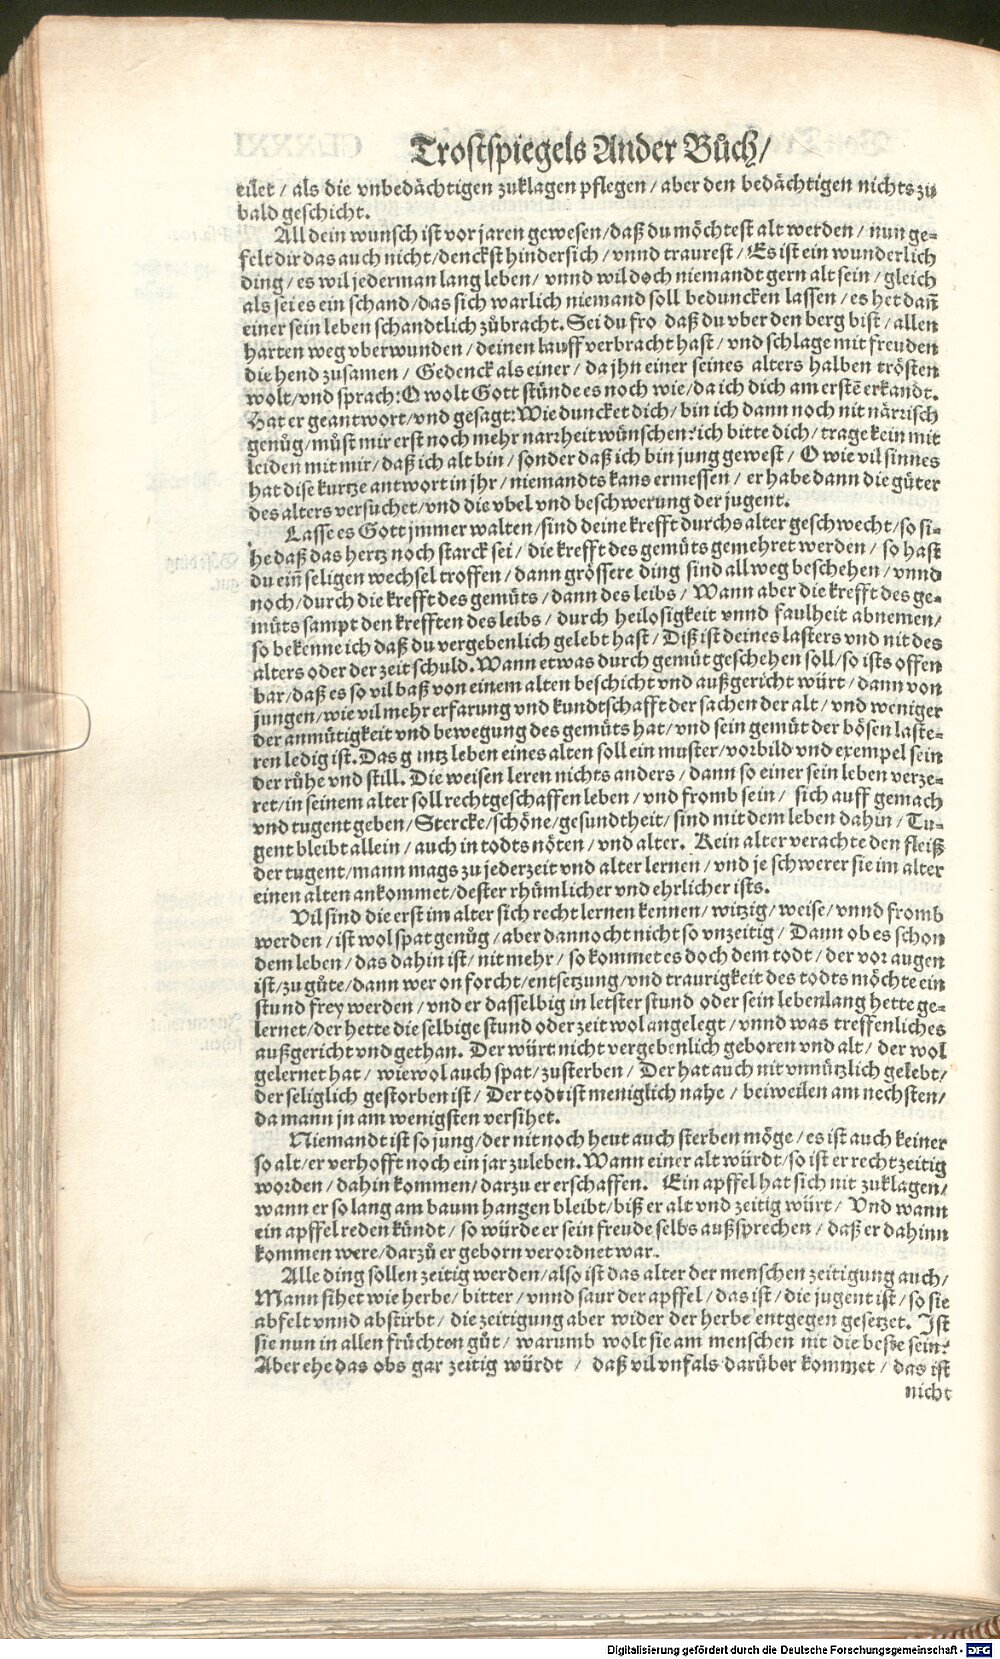 Trostspiegels Ander Bůch/
eilet / als die vnbedächtigen zuklagen pflegen / aber den bedächtigen nichts zu
bald geschicht.
All dein wunsch ist vor jaren gewesen / daß du möchtest alt werden / nun ge-
felt dir das auch nicht / denckst hindersich / vnnd traurest / Es ist ein wunderlich
ding / es wil jederman lang leben / vnnd wil doch niemandt gern alt sein / gleich
als sei es ein schand / das sich warlich niemand soll beduncken lassen / es het dañ
einer sein leben schandtlich zůbracht. Sei du fro daß du vber den berg bist / allen
harten weg vberwunden / deinen lauff verbracht hast / vnd schlage mit freuden
die hend zusamen / Gedenck als einer / da jhn einer seines alters halben trösten
wolt / vnd sprach: O wolt Gott stünde es noch wie / da ich dich am erstẽ erkandt.
Hat er geantwort / vnd gesagt: Wie duncket dich / bin ich dann noch nit närrisch
genůg / můst mir erst noch mehr narrheit wünschen? ich bitte dich / trage kein mit
leiden mit mir / daß ich alt bin / sonder daß ich bin jung gewest / O wie vil sinnes
hat dise kurtze antwort in jhr / niemandts kans ermessen / er habe dann die güter
des alters versuchet / vnd die vbel vnd beschwerung der jugent.
Lasse es Gott jmmer walten / sind deine krefft durchs alter geschwecht / so si-
he daß das hertz noch starck sei / die krefft des gemüts gemehret werden / so hast
du eiñ seligen wechsel troffen / dann grössere ding sind allweg beschehen / vnnd
noch / durch die krefft des gemüts / dann des leibs / Wann aber die krefft des ge-
müts sampt den krefften des leibs / durch heilosigkeit vnnd faulheit abnemen /
so bekenne ich daß du vergebenlich gelebt hast / Diß ist deines lasters vnd nit des
alters oder der zeit schuld. Wann etwas durch gemüt geschehen soll / so ists offen
bar / daß es so vil baß von einem alten beschicht vnd außgericht würt / dann von
jungen / wie vil mehr erfarung vnd kundtschafft der sachen der alt / vnd weniger
der anmütigkeit vnd bewegung des gemüts hat / vnd sein gemüt der bösen laste-
ren ledig ist. Das g intz leben eines alten soll ein muster / vorbild vnd exempel sein
der růhe vnd still. Die weisen leren nichts anders / dann so einer sein leben verze-
ret / in seinem alter soll rechtgeschaffen leben / vnd fromb sein / sich auff gemach
vnd tugent geben / Stercke / schöne / gesundtheit / sind mit dem leben dahin / Tu-
gent bleibt allein / auch in todts nöten / vnd alter. Kein alter verachte den fleiß
der tugent / mann mags zu jederzeit vnd alter lernen / vnd je schwerer sie im alter
einen alten ankommet / dester rhümlicher vnd ehrlicher ists.
Vil sind die erst im alter sich recht lernen kennen / witzig / weise / vnnd fromb
werden / ist wol spat genůg / aber dannocht nicht so vnzeitig / Dann ob es schon
dem leben / das dahin ist / nit mehr / so kommet es doch dem todt / der vor augen
ist / zu gůte / dann wer on forcht / entsetzung / vnd traurigkeit des todts möchte ein
stund frey werden / vnd er dasselbig in letster stund oder sein lebenlang hette ge-
lernet / der hette die selbige stund oder zeit wol angelegt / vnnd was treffenliches
außgericht vnd gethan. Der würt nicht vergebenlich geboren vnd alt / der wol
gelernet hat / wiewol auch spat / zusterben / Der hat auch nit vnnützlich gelebt /
der seliglich gestorben ist / Der todt ist meniglich nahe / beiweilen am nechsten /
da mann jn am wenigsten versihet.
Niemandt ist so jung / der nit noch heut auch sterben möge / es ist auch keiner
so alt / er verhofft noch ein jar zuleben. Wann einer alt würdt / so ist er recht zeitig
worden / dahin kommen / darzu er erschaffen. Ein apffel hat sich nit zuklagen /
wann er so lang am baum hangen bleibt / biß er alt vnd zeitig würt / Vnd wann
ein apffel reden kündt / so würde er sein freude selbs außsprechen / daß er dahinn
kommen were / darzů er geborn verordnet war.
Alle ding sollen zeitig werden / also ist das alter der menschen zeitigung auch /
Mann sihet wie herbe / bitter / vnnd saur der apffel / das ist / die jugent ist / so sie
abfelt vnnd abstirbt / die zeitigung aber wider der herbe entgegen gesetzet. Ist
sie nun in allen früchten gůt / warumb wolt sie am menschen nit die beste sein?
Aber ehe das obs gar zeitig würdt / daß vil vnfals darüber kommet / das ist
nicht
Digitalisierung gefördert durch die Deutsche Forschungsgemeinschaft - DFG